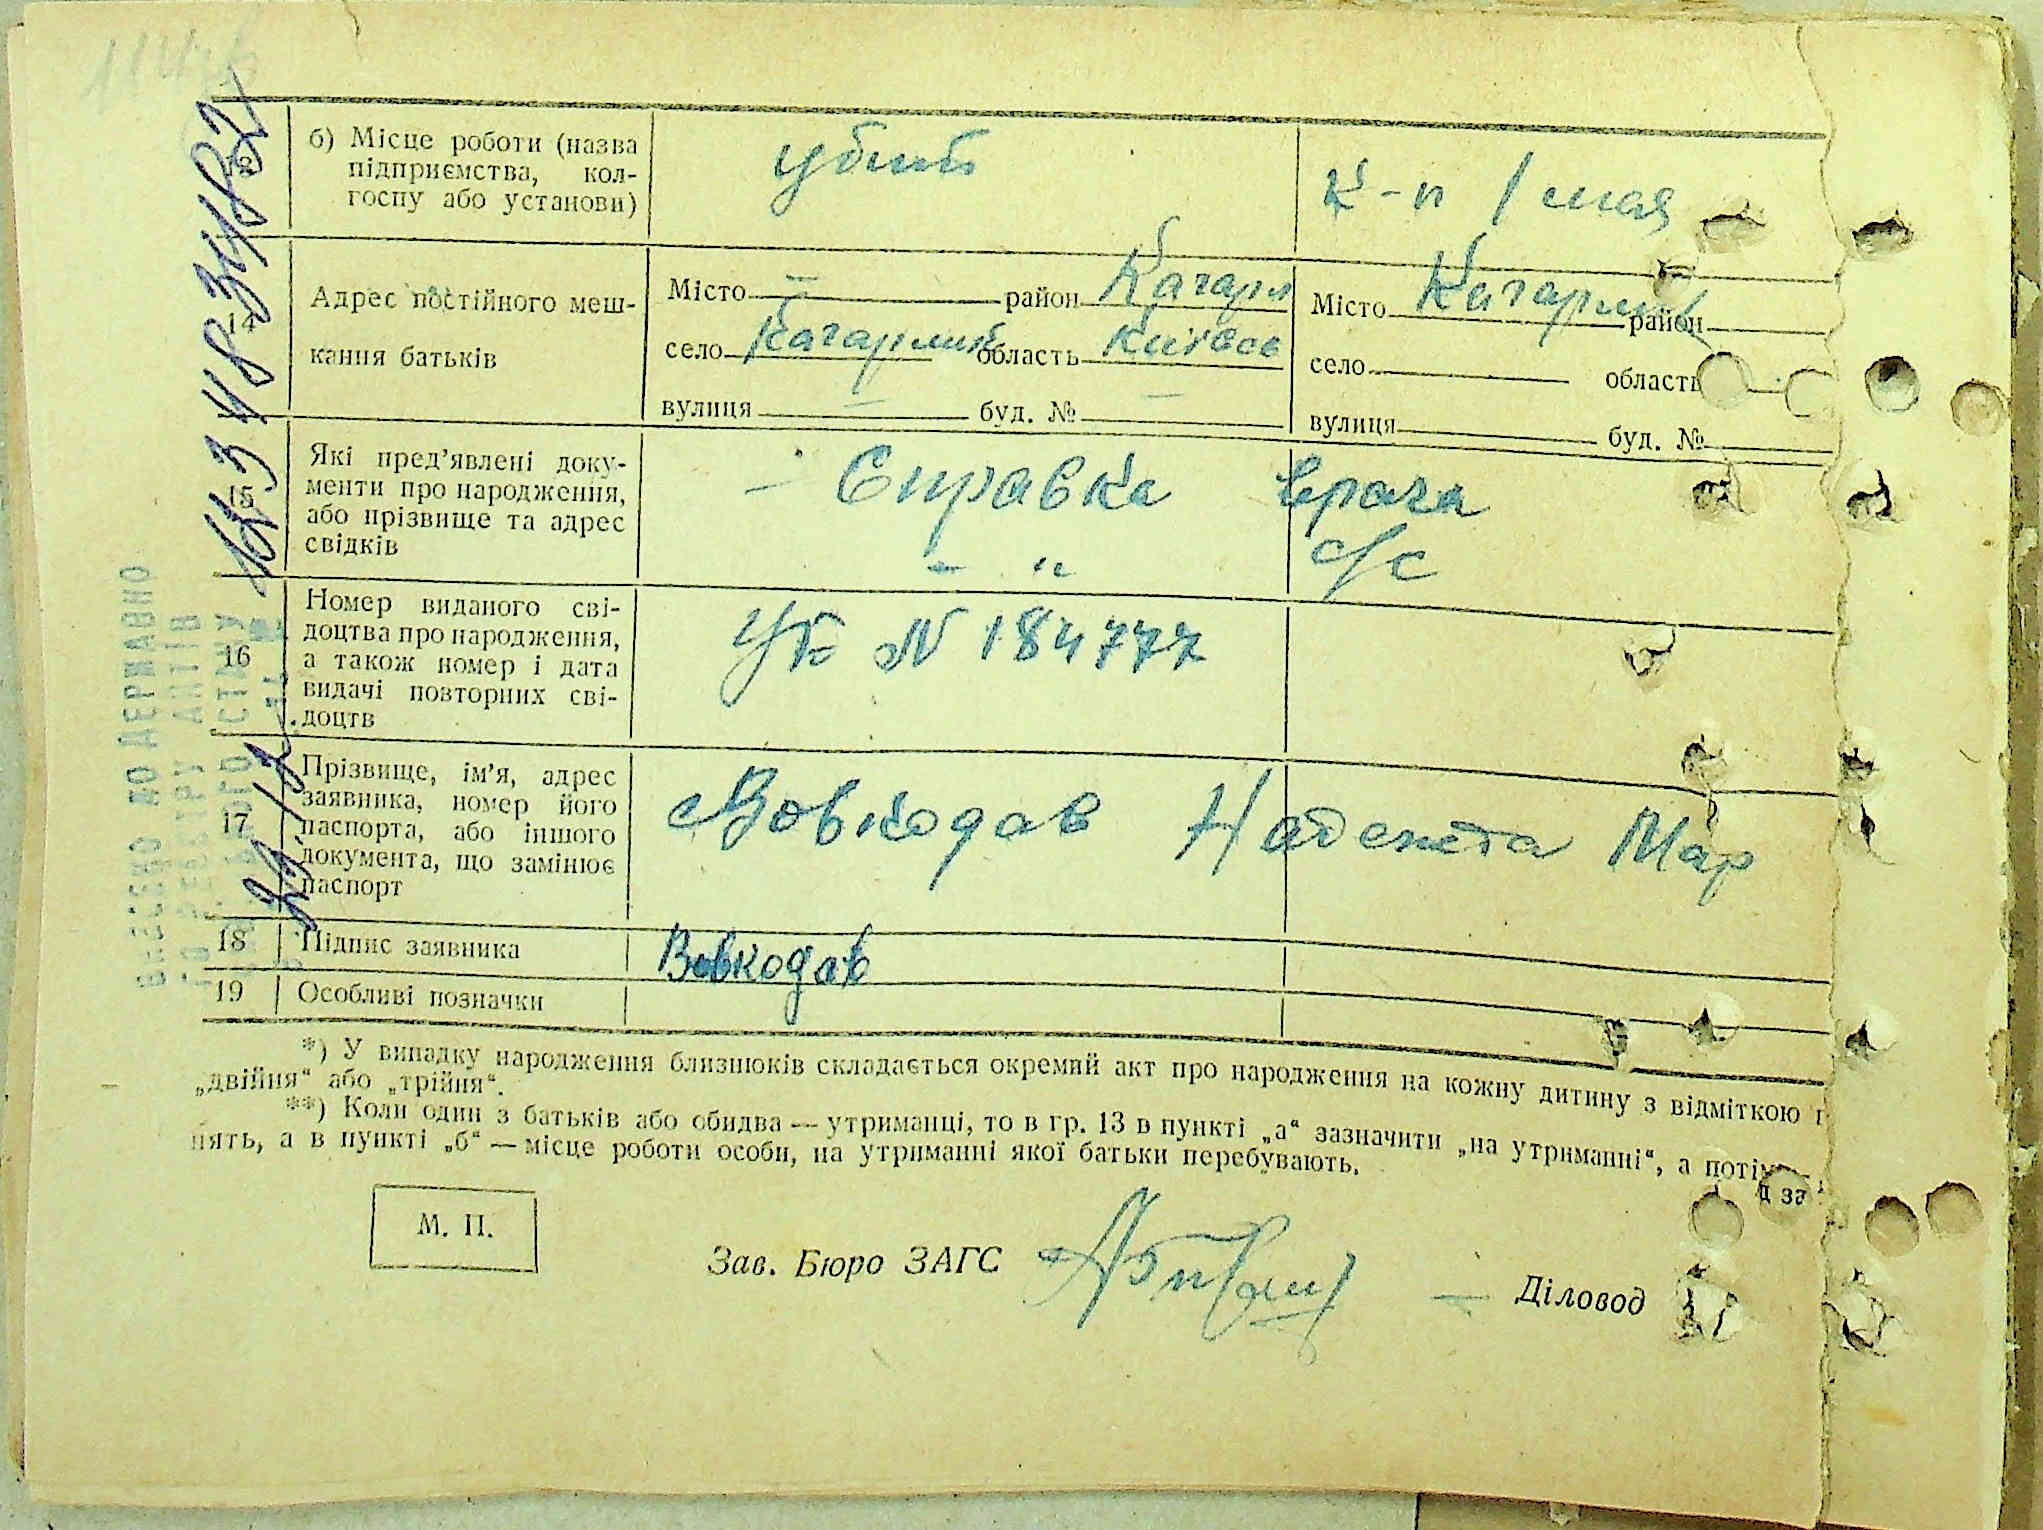 б) Місце роботи (назва
підприємства, кол-
госпу або установи)
убит
к-п 1 мая
14
Адрес постійного меш-
кання батьків
Місто — район Кагарл
село Кагарлик область Київсь
вулиця — буд. № —
Місто Кагарлик район
село область
вулиця буд. №
15
Які пред’явлені доку-
менти про народження,
або прізвище та адрес
свідків
— Справка врача
– " с/с
16
Номер виданого сві-
доцтва про народження,
а також номер і дата
видачі повторних сві-
доцтв
УБ № 184777
17
Прізвище, ім’я, адрес
заявника, номер його
паспорта, або іншого
документа, що замінює
паспорт
Вовкодав Надежта Мар
18
Підпис заявника
Вовкодав
19
Особливі позначки
*) У випадку народження близнюків складається окремий акт про народження на кожну дитину з відміткою
„двійня“ або „трійня“.
**) Коли один з батьків або обидва — утриманці, то в гр. 13 в пункті „а“ зазначити „на утриманні“, а потім
нять, а в пункті „б“ — місце роботи особи, на утриманні якої батьки перебувають.
М. П.
Зав. Бюро ЗАГС
— Діловод
ВНЕСЕНО ДО ДЕРЖАВНО
ГО РЕЄСТРУ АКТІВ